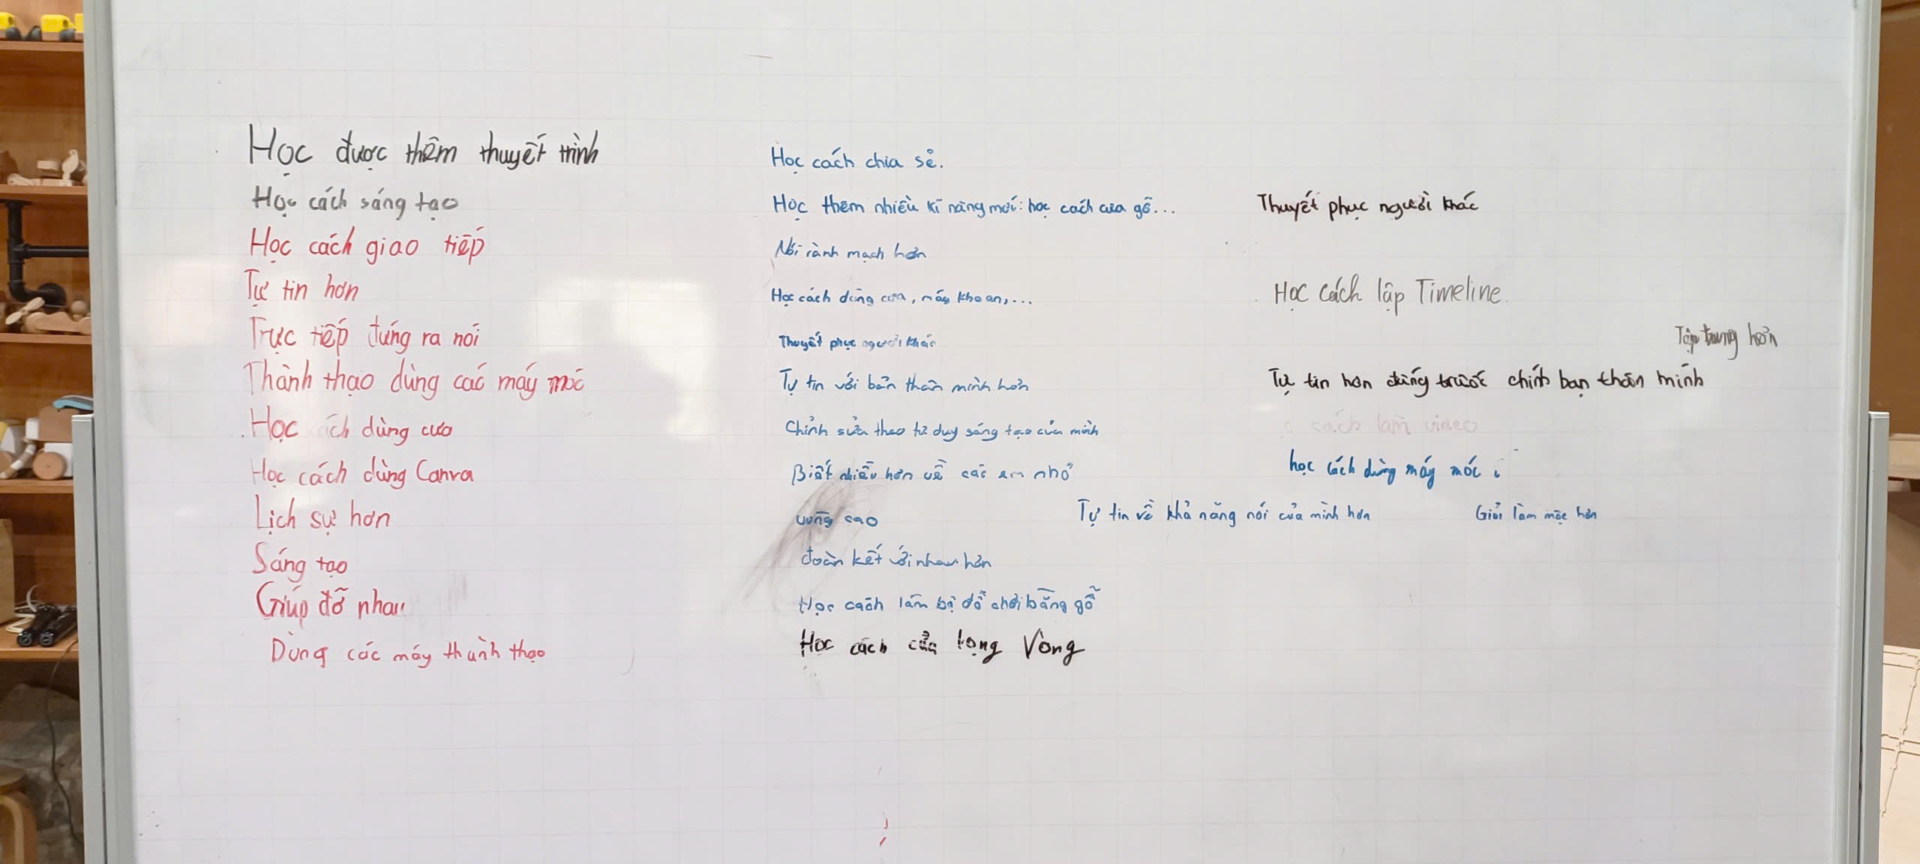 Học được thêm thuyết trình
Học cách sáng tạo
Học cách giao tiếp
Tự tin hơn
Trực tiếp đứng ra nói
Thành thạo dùng các máy móc
Học cách dùng cưa
Học cách dùng Canva
Lịch sự hơn
Sáng tạo
Giúp đỡ nhau
Dùng các máy thành thạo
Học cách chia sẻ.
Học thêm nhiều kĩ năng mới: học cách cưa gỗ...
Nói rành mạch hơn
Học cách dùng cưa, máy khoan,...
Thuyết phục người khác
Tự tin với bản thân mình hơn
Chỉnh sửa theo tư duy sáng tạo của mình
Biết nhiều hơn về các em nhỏ
cao
đoàn kết với nhau hơn
Học cách làm bộ đồ chơi bằng gỗ
Học cách cưa lọng Vòng
Thuyết phục người khác
Học cách lập Timeline
Tập trung hơn
Tự tin hơn đứng trước chính bạn thân mình
cách làm video
học cách dùng máy móc
Tự tin về khả năng nói của mình hơn
Giỏi làm mộc hơn